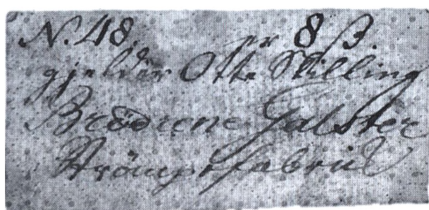 N. 48 er 8 ß
gjelder Otte Skilling
Brödrene Galster
Strömpefabrik